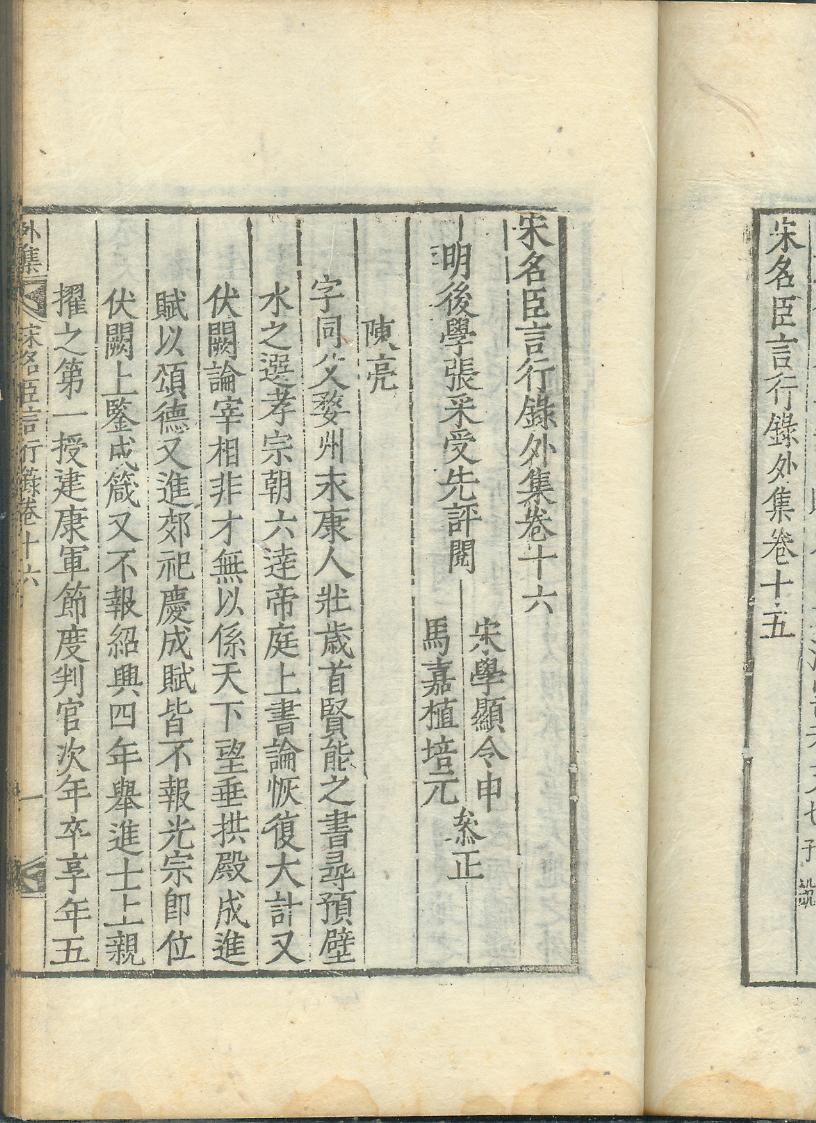 宋名臣言行錄外集卷十五
宋名臣言行錄外集卷十六
明後學張采受先評閱
宋學顯令申
馬嘉植培元
叅正
陳亮
字同父婺州永康人壯歲首賢能之書尋預璧
水之選孝宗朝六達帝庭上書論恢復大計又
伏闕論宰相非才無以係天下望垂拱殿成進
賦以頌德又進郊祀慶成賦皆不報光宗卽位
伏闕上鑒成箴又不報紹興四年舉進士上親
擢之第一授建康軍節度判官次年卒享年五
外集
宋名臣言行錄卷十六
一